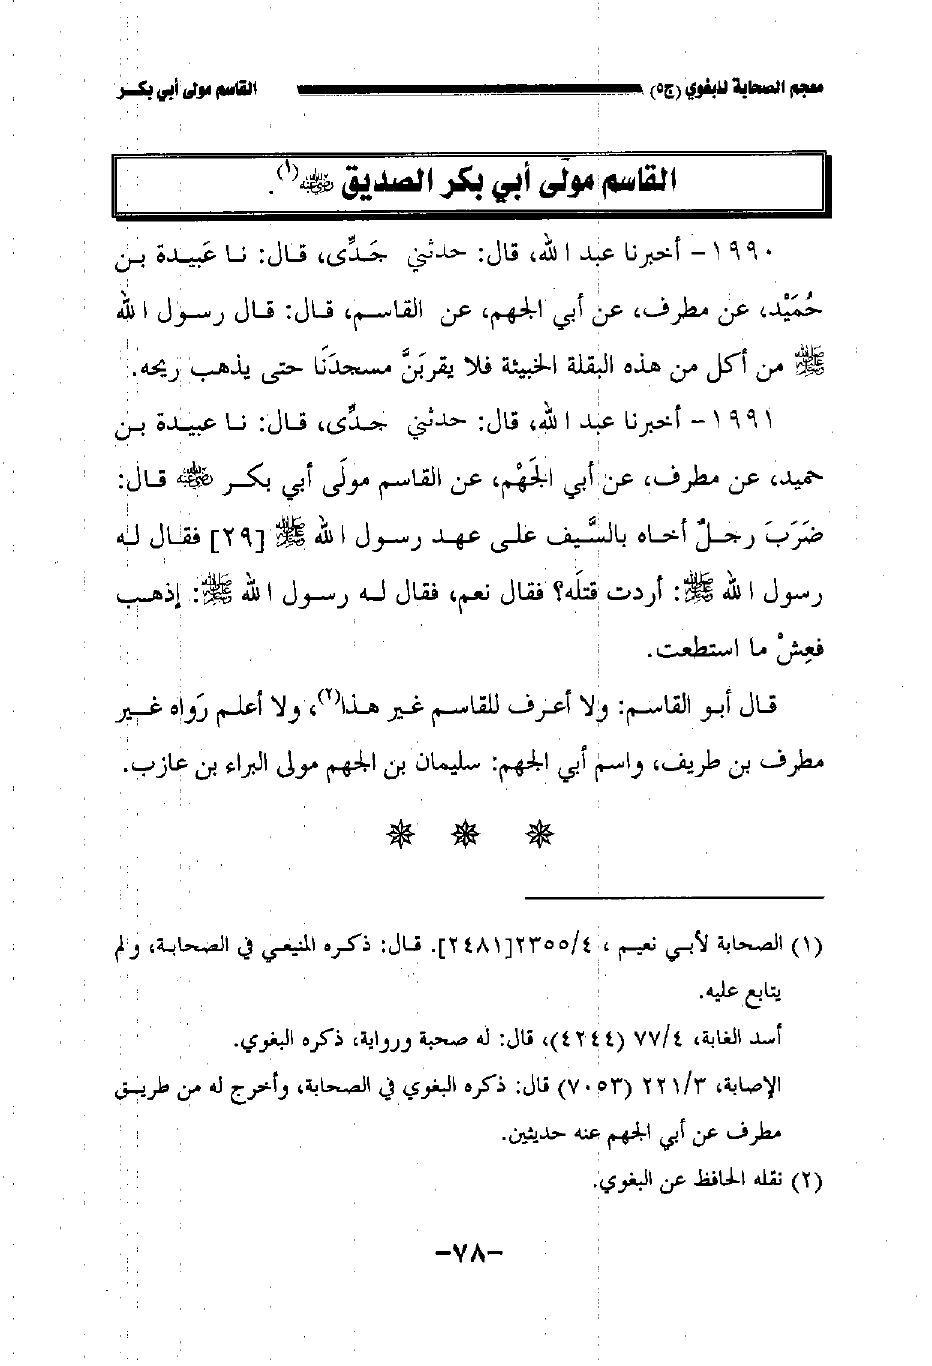 معجم الصحابة للبغوي (ج٥) القاسم مولى أبي بكر
القاسم مولَى أبي بكر الصديق رضي الله عنه (١).
١٩٩٠- أخبرنا عبد الله، قال: حدثني جَدِّى، قال: نا عَبيدة بن
حُمَيْد، عن مطرف، عن أبي الجهم، عن القاسم، قال: قال رسول الله
ﷺ من أكل من هذه البقلة الخبيثة فلا يقربَنَّ مسجدَنَا حتى يذهب ريحه.
١٩٩١- أخبرنا عبد الله، قال: حدثني جدِّى، قال: نا عبيدة بن
حميد، عن مطرف، عن أبي الجَهْم، عن القاسم مولَى أبي بكر رضي الله عنه قال:
ضَرَبَ رجلٌ أخاه بالسَّيف على عهد رسول الله ﷺ [٢٩] فقال له
رسول الله ﷺ: أردت قتلَه؟ فقال نعم، فقال له رسول الله ﷺ: إذهب
فعِشْ ما استطعت.
قال أبو القاسم: ولا أعرف للقاسم غير هذا(٢)، ولا أعلم رَواه غير
مطرف بن طريف، واسم أبي الجهم: سليمان بن الجهم مولى البراء بن عازب.
(١) الصحابة لأبي نعيم ، ٢٣٥٥/٤[٢٤٨١]. قال: ذكره المنيعي في الصحابة، ولم
يتابع عليه.
أسد الغابة، ٧٧/٤ (٤٢٤٤)، قال: له صحبة ورواية، ذكره البغوي.
الإصابة، ٢٢١/٣ (٧٠٥٣) قال: ذكره البغوي في الصحابة، وأخرج له من طريق
مطرف عن أبي الجهم عنه حديثين.
(٢) نقله الحافظ عن البغوي.
-٧٨-